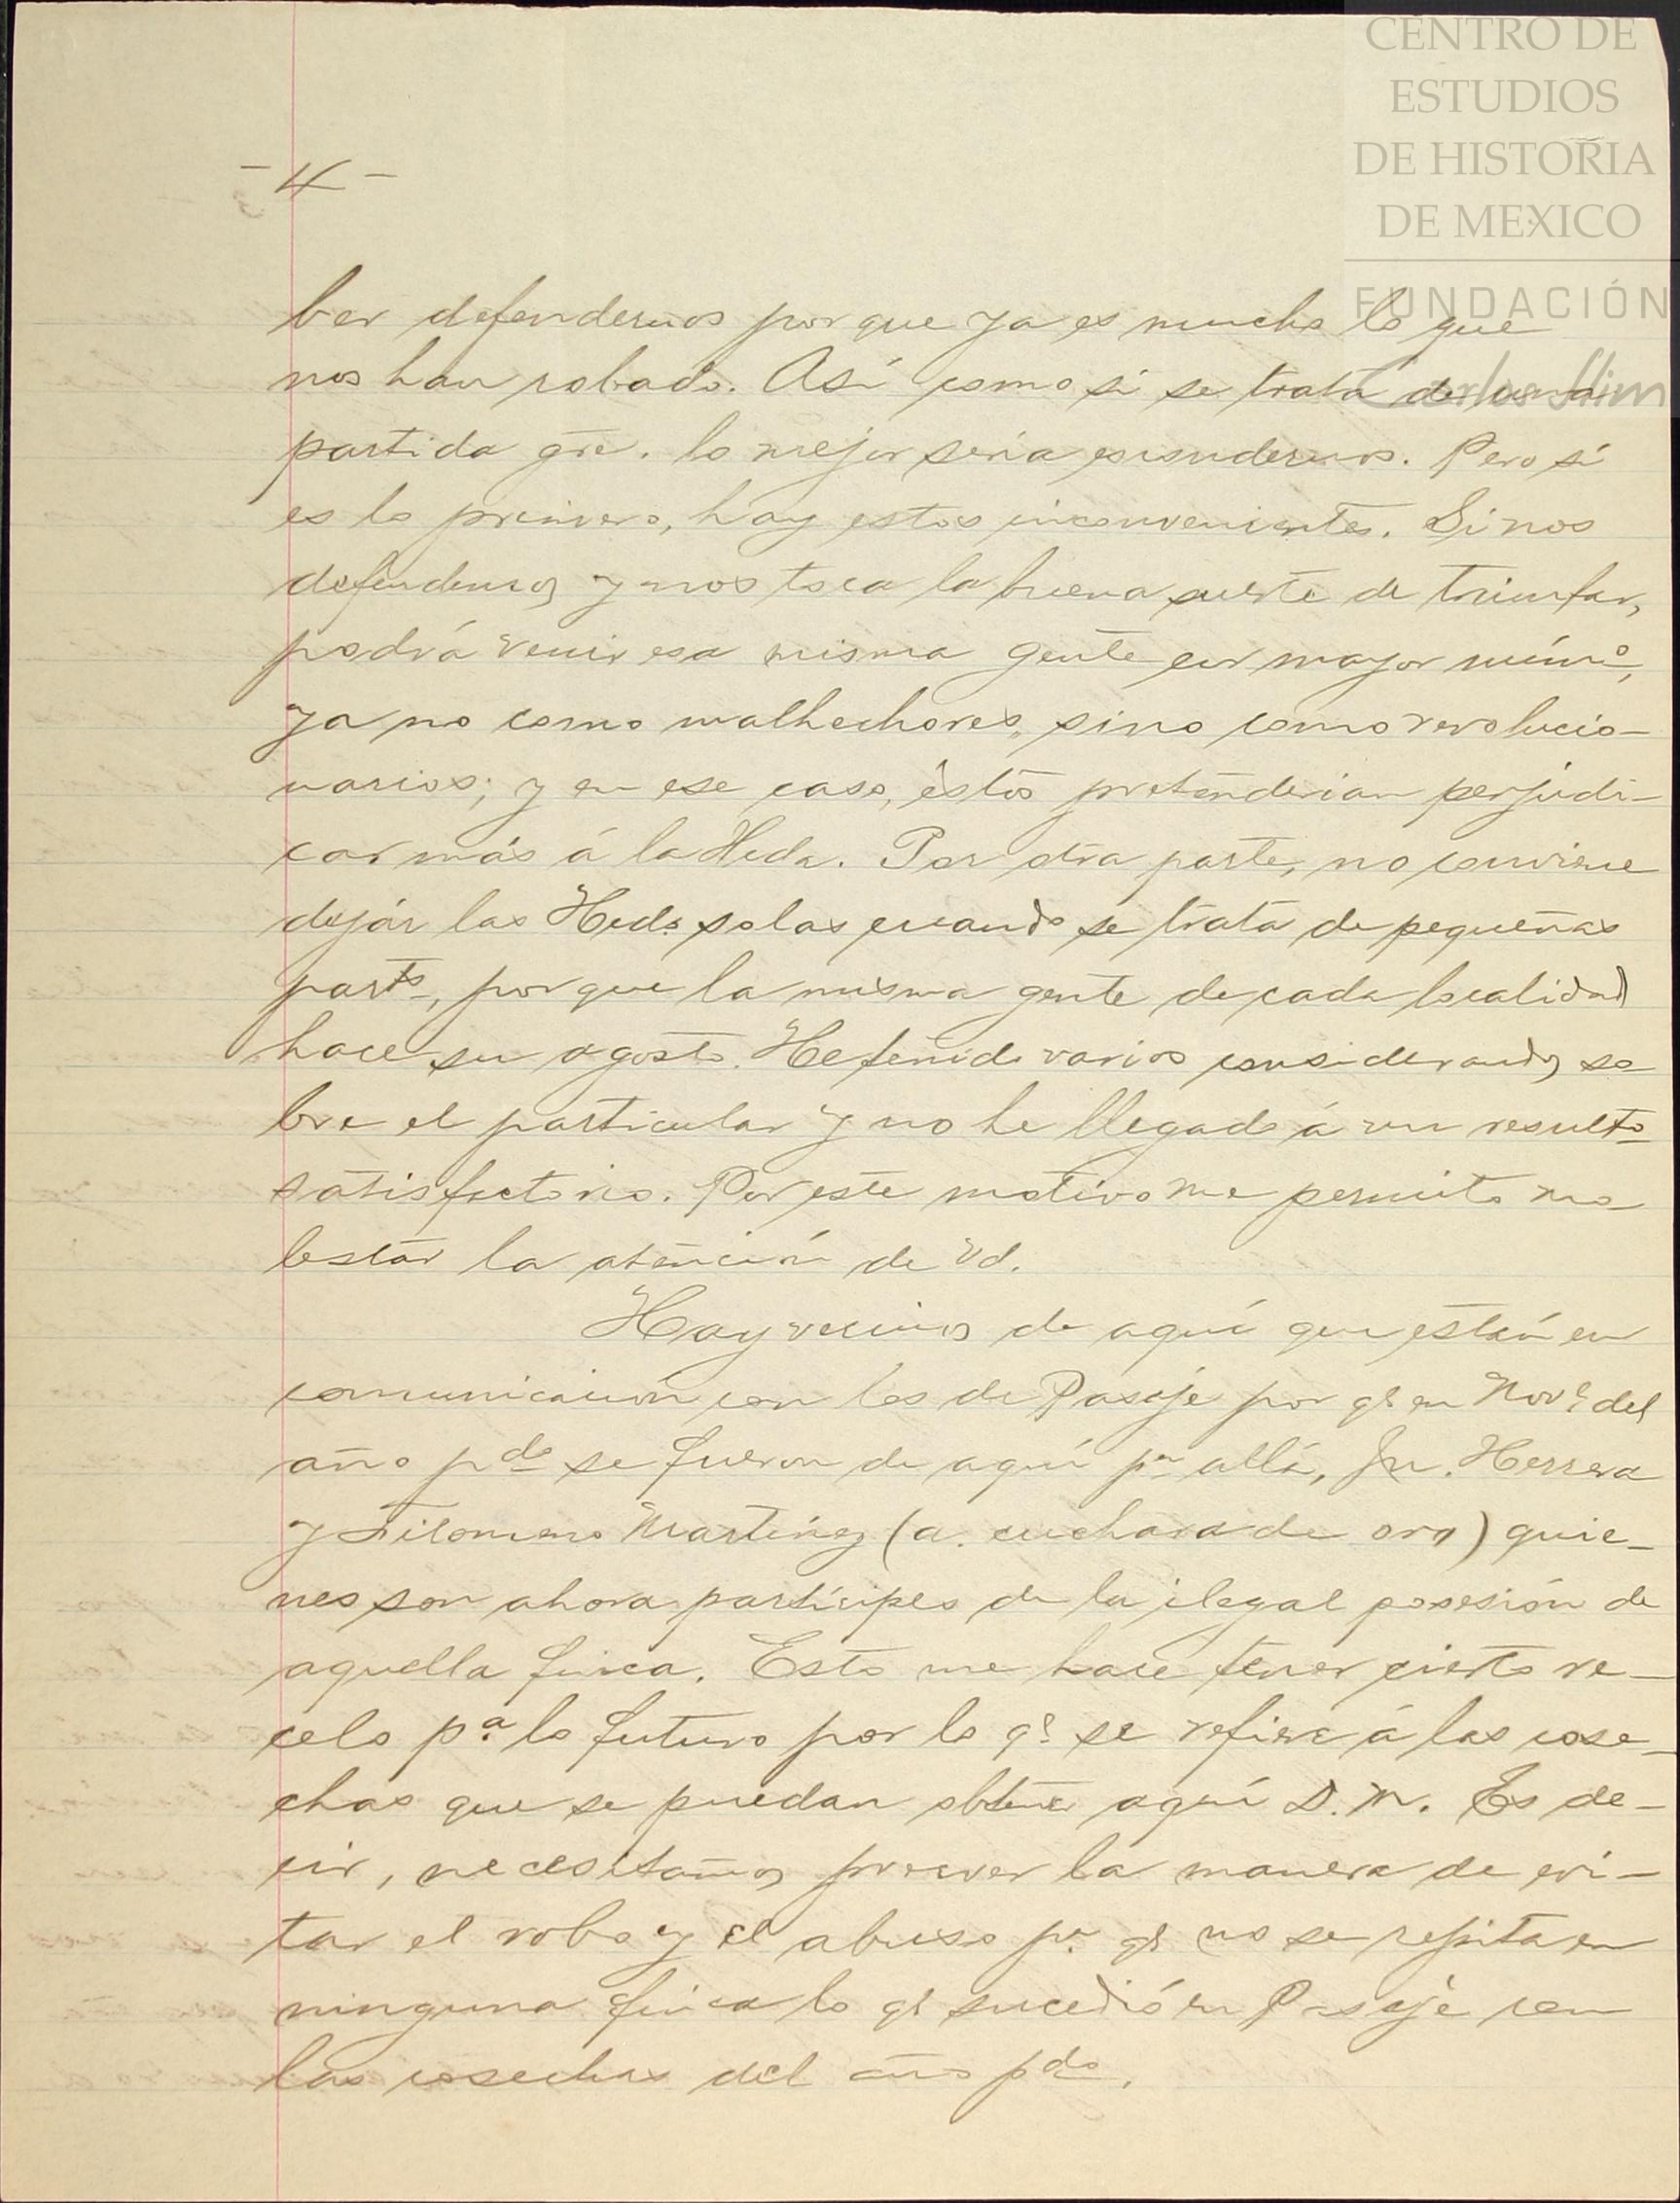 CENTRO DE
ESTUDIOS
DE HISTORIA
DE MEXICO
FUNDACIÓN
Carlos Slim
- 4 -
ber defendernos por que ya es mucho lo que
nos han robado. Así como si se trata de una
partida gre. lo mejor sería escondernos. Pero si
es lo primero, hay estos inconvenientes. Si nos
defendemos y nos toca la buena suerte de triunfar,
podrá venir esa misma gente en mayor númo,
ya no como malhechores, sino como revolucio-
narios; y en ese caso, éstos pretenderian perjudi-
car más á la Hcda. Por otra parte, no conviene
dejar las Hcds. solas cuando se trata de pequeñas
parts, por que la misma gente de cada localidad
hace su agosto. He tenido varios considerandos so-
bre el particular y no he llegado á un resultо
satisfactorio. Por este motivo me permito mo-
lestar la atención de Vd.
Hay vecinos de aquí que están en
comunicación con los de Pasaje por qe en Nove del
año pdo se fueron de aquí pa allá, Jn. Herrera
y Filomeno Martínez (a. cuchara de oro) quie-
nes son ahora partícipes de la ilegal posesión de
aquella finca. Esto me hace tener cierto re-
celo pa lo futuro por lo qe se refiere á las cose-
chas que se puedan obtener aquí D. M. Es de-
cir, necesitamos preever la manera de evi-
tar el robo y el abuso pa qe no se repita en
ninguna finca lo qe sucedió en Pasaje con
las cosechas del año pdo.